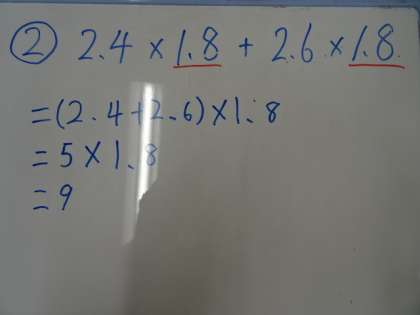 ② 2.4 × 1.8 + 2.6 × 1.8
= (2.4 + 2.6) × 1.8
= 5 × 1.8
= 9